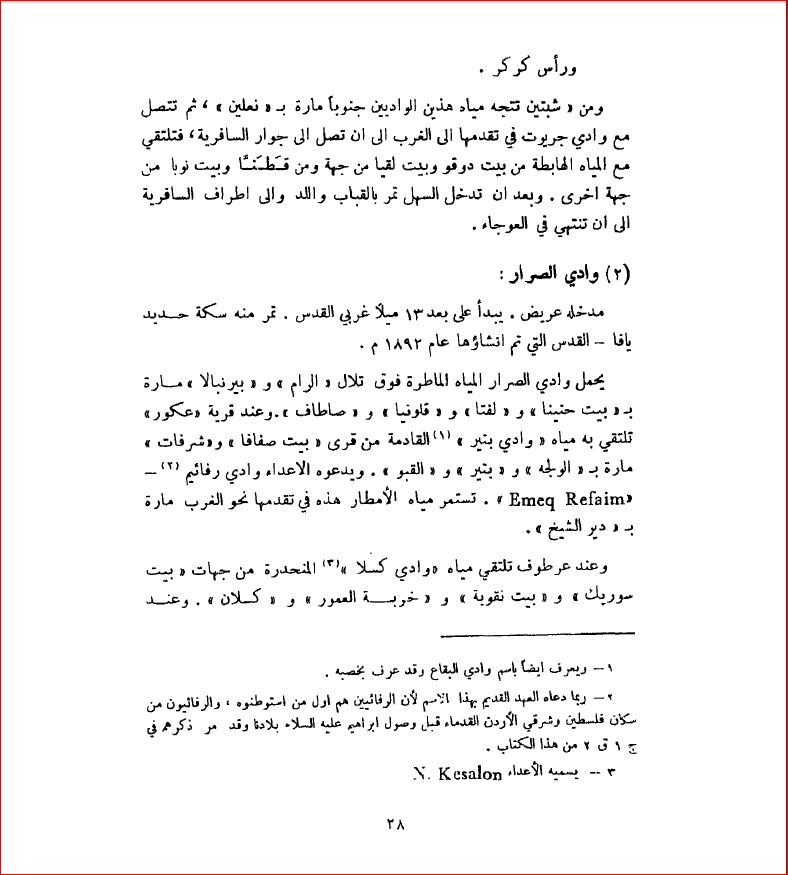 ورأس كوكر .
ومن « شبتين تتجه مياه هذين الواديين جنوباً مارة بـ « نعلين » ، ثم تتصل
مع وادي جريوت في تقدمها الى الغرب الى ان تصل الى جوار السافرية ، فتلتقي
مع المياه الهابطة من بيت دوقو وبيت لقيا من جهة ومن قَطَنَّا وبيت نوبا من
جهة اخرى . وبعد ان تدخل السهل تمر بالقباب واللد والى اطراف السافرية
الى ان تنتهي في العوجاء .
(٢) وادي الصرار :
مدخله عريض . يبدأ على بعد ١٣ ميلاً غربي القدس . تمر منه سكة حـديد
يافا – القدس التي تم انشاؤها عام ١٨٩٢ م .
يحمل وادي الصرار المياه الماطرة فوق تلال « الرام » و « بيرنبالا » مـارة
بـ « بيت حنينا » و « لفتا » و « قلونيا » و « صاطاف » .وعند قرية «عكور»
تلتقي به مياه « وادي بتير » (١) القادمة من قرى « بيت صفافا » و«شرفات »
مارة بـ « الولجه » و « بتير » و « القبو » . ويدعوه الاعداء وادي رفائيم (٢) –
«Emeq Refaim » . تستمر مياه الأمطار هذه في تقدمها نحو الغرب مارة
بـ « دير الشيخ » .
وعند عرطوف تلتقي مياه «وادي كسلا »(٣) المنحدرة من جهات « بيت
سوريك » و « بيت نقوبة » و « خربــة العمور » و « كـسلان » . وعنـد
١ – ويعرف ايضاً باسم وادي البقاع وقد عرف بخصبه .
٢ – ربما دعاه العهد القديم بهذا الاسم لأن الرفائيين هم اول من استوطنوه ، والرفائيون من
سكان فلسطين وشرقي الأردن القدماء قبل وصول ابراهيم عليه السلام بلادنا وقد مر ذكرهم في
ج ١ ق ٢ من هذا الكتاب .
٣ – يسميه الأعداء N. Kesalon
٢٨